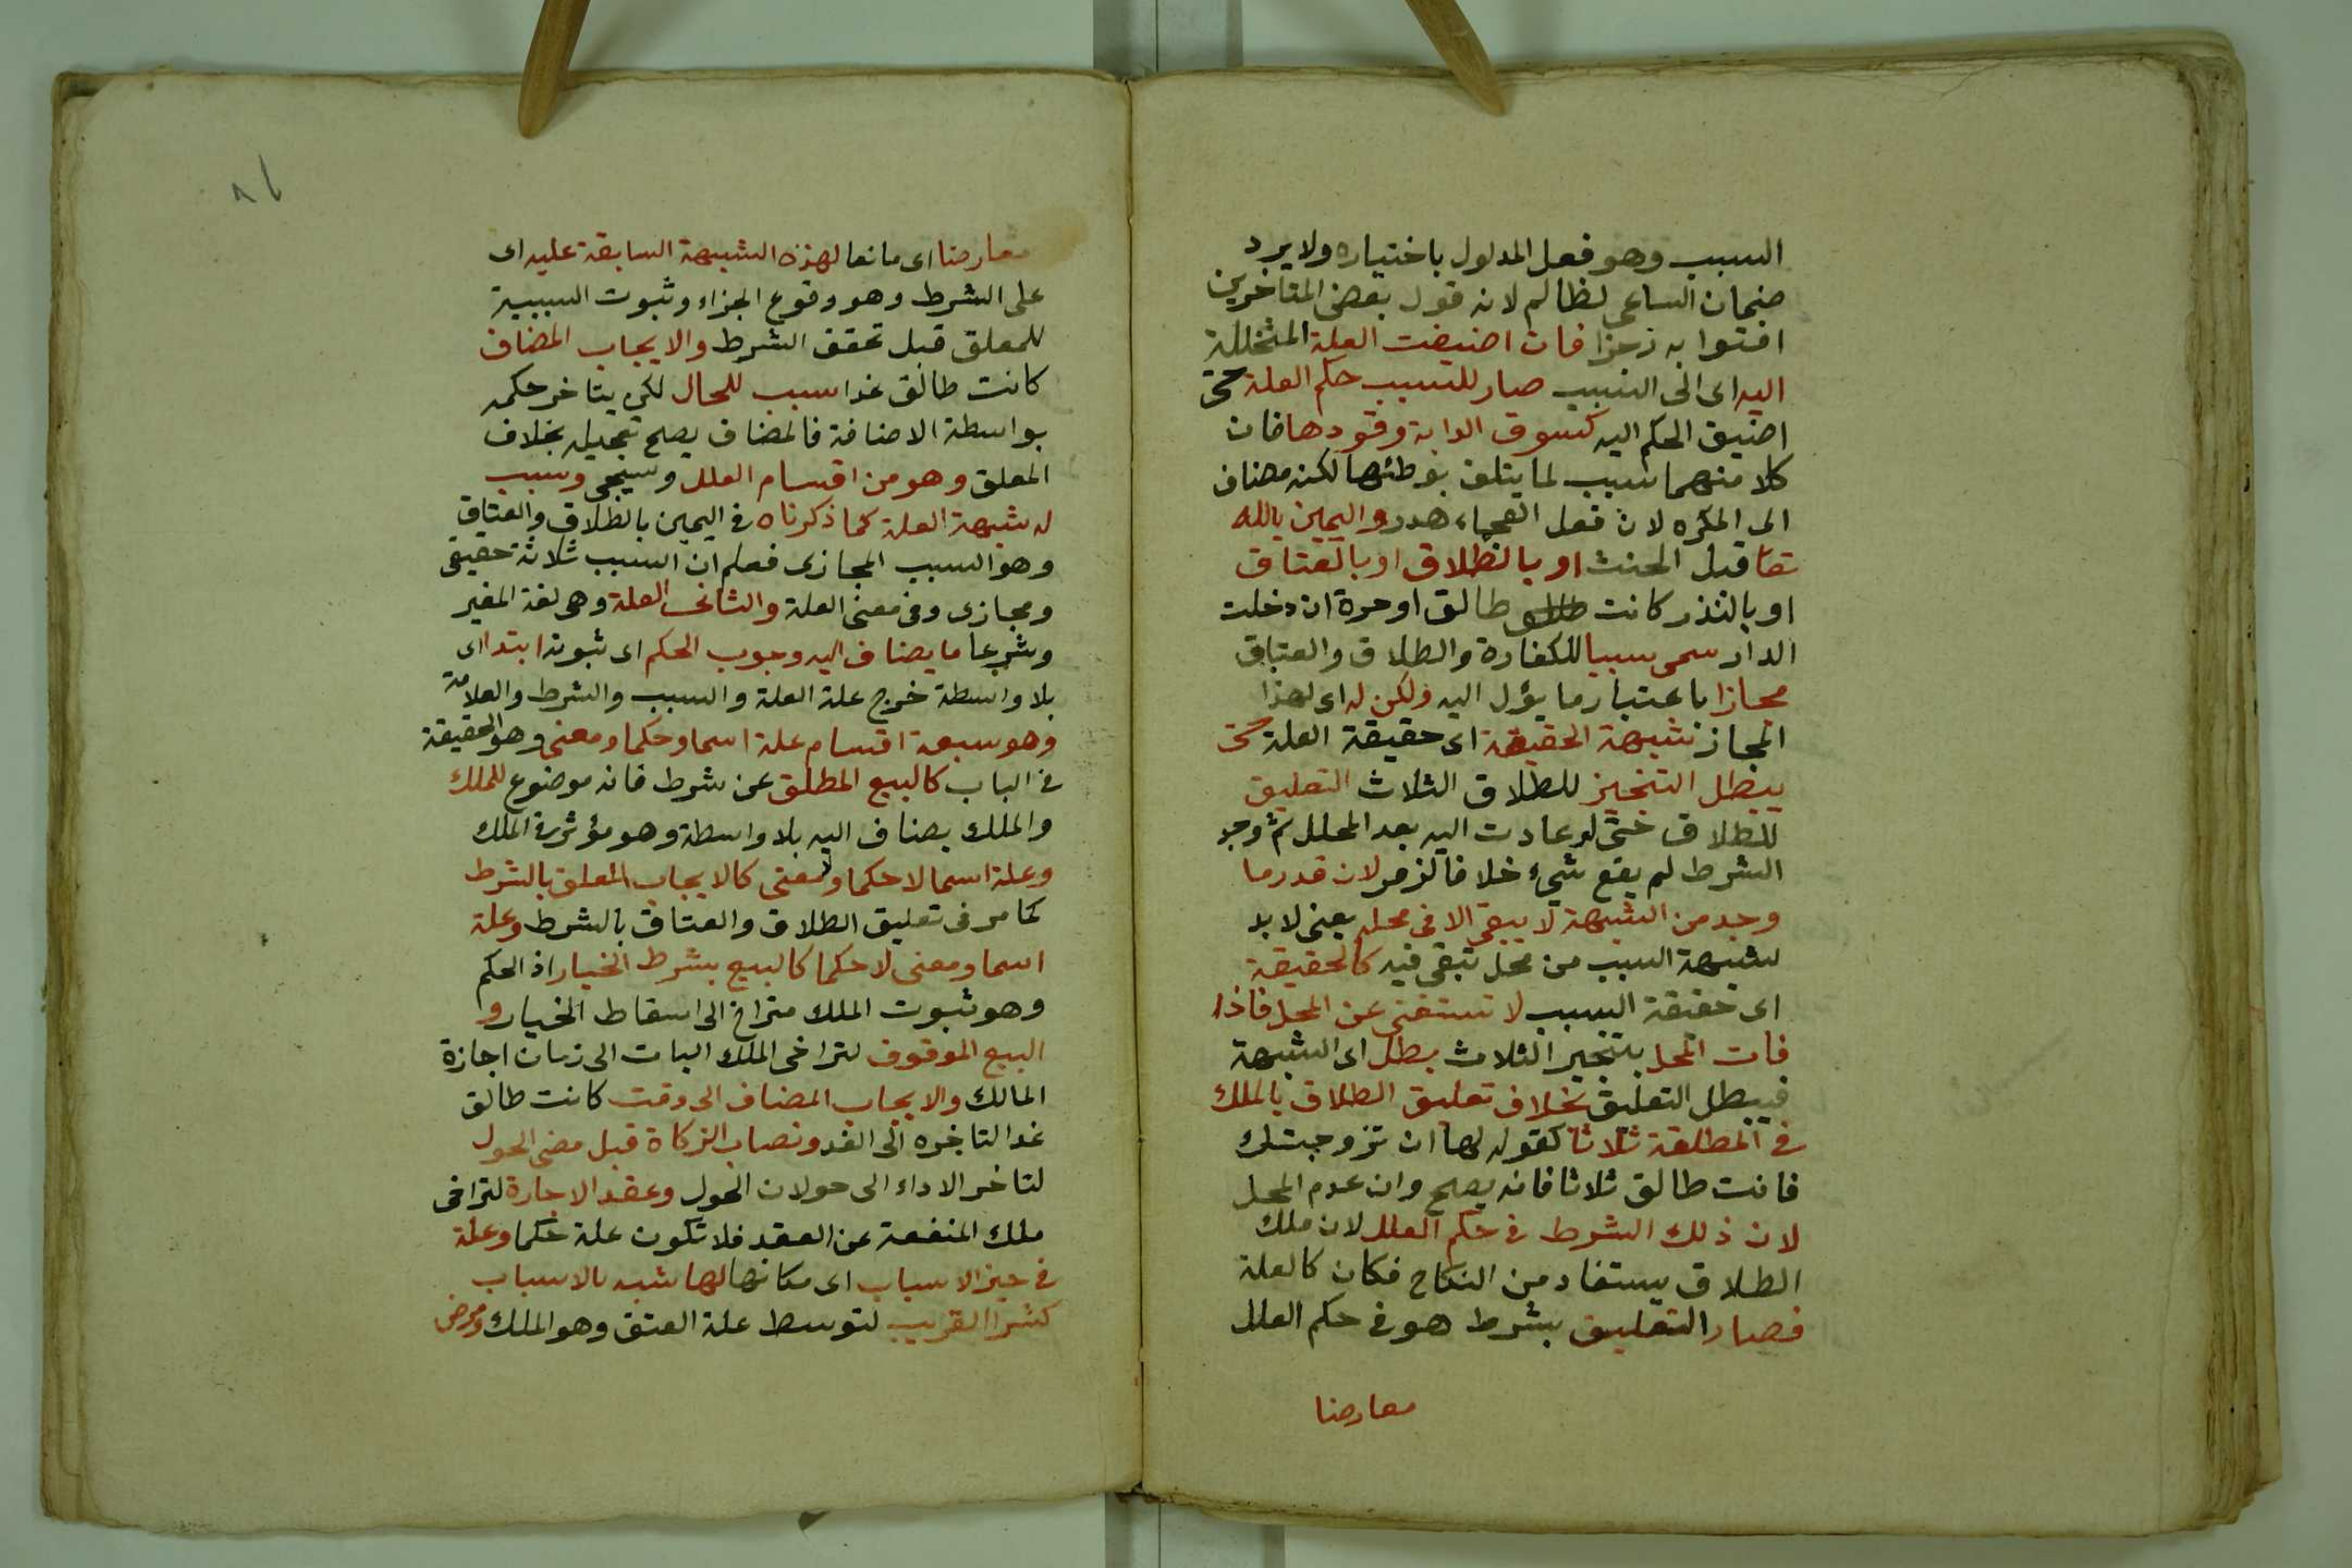 السبب وهو فعل المدلول باختياره ولا يرد
ضمان الساعي لظالم لانه قول بعض المتاخرين
افتوا به زجرا فان اضيفت العلة المتخللة
اليه اى الى السبب صار للسبب حكم العلة حتى
اضيق الحكم اليه كسوق الدابة وقودها فان
كلا منهما سبب لما يتلف بوطئها لكنه مضاف
الى المكره لان فعل العجماء هدر واليمين بالله
تعا قبل الحنث او بالطلاق او بالعتاق
او بالنذر كانت طالق اوحرة ان دخلت
الدار سمى سببا للكفارة والطلاق والعتاق
مجازا باعتبار ما يؤل اليه ولكن له اى لهذا
المجاز شبهة الحقيقة اى حقيقة العلة حتى
يبطل التنجيز للطلاق الثلاث التعليق
للطلاق حتى لو عادت اليه بعد المحلل ثم وجد
الشرط لم يقع شيء خلافا لزفر لان قدر ما
وجد من الشبهة لا يبقى الا فى محله يعنى لا بد
لشبهة السبب من محل تبقى فيه كالحقيقة
اى حقيقة السبب لا تستغنى عن المحل فاذا
فات المحل بتنجيز الثلاث بطل اى الشبهة
فيبطل التعليق بخلاف تعليق الطلاق بالملك
فى المطلقة ثلاثا كقوله لها ان تزوجتك
فانت طالق ثلاثا فانه يصح وان عدم المحل
لان ذلك الشرط فى حكم العلل لان ملك
الطلاق يستفاد من النكاح فكان كالعلة
فصار التعليق بشرط هو فى حكم العلل
معارضا
معارضا اى مانعا لهذه الشبهة السابقة عليه اى
على الشرط وهو وقوع الجزاء وثبوت السببية
للمعلق قبل تحقق الشرط والايجاب المضاف
كانت طالق غدا سبب للحال لكن يتاخر حكمه
بواسطة الاضافة فالمضاف يصح تعجيله بخلاف
المعلق وهو من اقسام العلل وسيجى وسبب
له شبهة العلة كما ذكرناه فى اليمين بالطلاق والعتاق
وهو السبب المجازى فعلم ان السبب ثلاثة حقيقى
ومجازى وفى معنى العلة والثانى العلة وهى لغة المغير
وشرعا ما يضاف اليه وجوب الحكم اى ثبوته ابتدا اى
بلا واسطة خرج علة العلة والسبب والشرط والعلامة
وهو سبعة اقسام علة اسما وحكما ومعنى وهو الحقيقة
فى الباب كالبيع المطلق عن شرط فانه موضوع للملك
والملك يضاف اليه بلا واسطة وهو مؤثر فى الملك
وعلة اسما لا حكما ولا معنى كالايجاب المعلق بالشرط
كما مر فى تعليق الطلاق والعتاق بالشرط وعلة
اسما ومعنى لا حكما كالبيع بشرط الخيار اذ الحكم
وهو ثبوت الملك متراخ الى اسقاط الخيار و
البيع الموقوف لتراخى الملك البات الى زمان اجازة
المالك والايجاب المضاف الى وقت كانت طالق
غدا لتاخره الى الغد ونصاب الزكاة قبل مضى الحول
لتاخر الاداء الى حولان الحول وعقد الاجارة لتراخى
ملك المنفعة عن العقد فلا تكون علة حكما وعلة
فى حيز الاسباب اى مكانها لها شبه بالاسباب
كشرا القريب لتوسط علة العتق وهو الملك ومرض